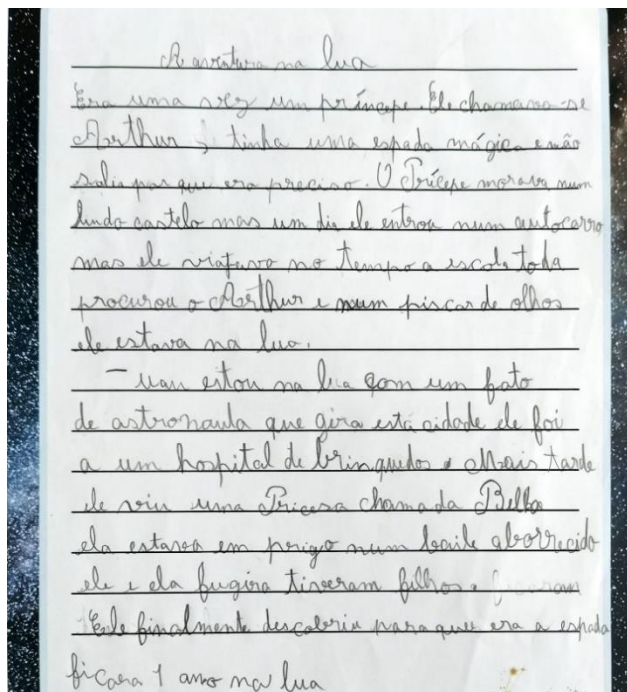 A aventura na lua
Era uma vez um príncepe. Ele chamava-se
Arthur, tinha uma espada mágica e não
sabia par que era preciso. O Prícepe morava num
lindo castelo mas um dia ele entroa num autocarro
mas ele viajava no tempo a escola toda
procurou o Arthur e num piscar de olhos
ele estava na lua.
– uau estou na lua com um fato
de astronauta que gira está cidade ele foi
a um hospital de brinquedos. Mais tarde
ele viu uma Pricesa chamada Bella
ela estava em prigo num baile aborrecido
ele e ela fugira tiveram filhos.
Ele finalmente descobriu para que era a espada
ficara 1 ano na lua